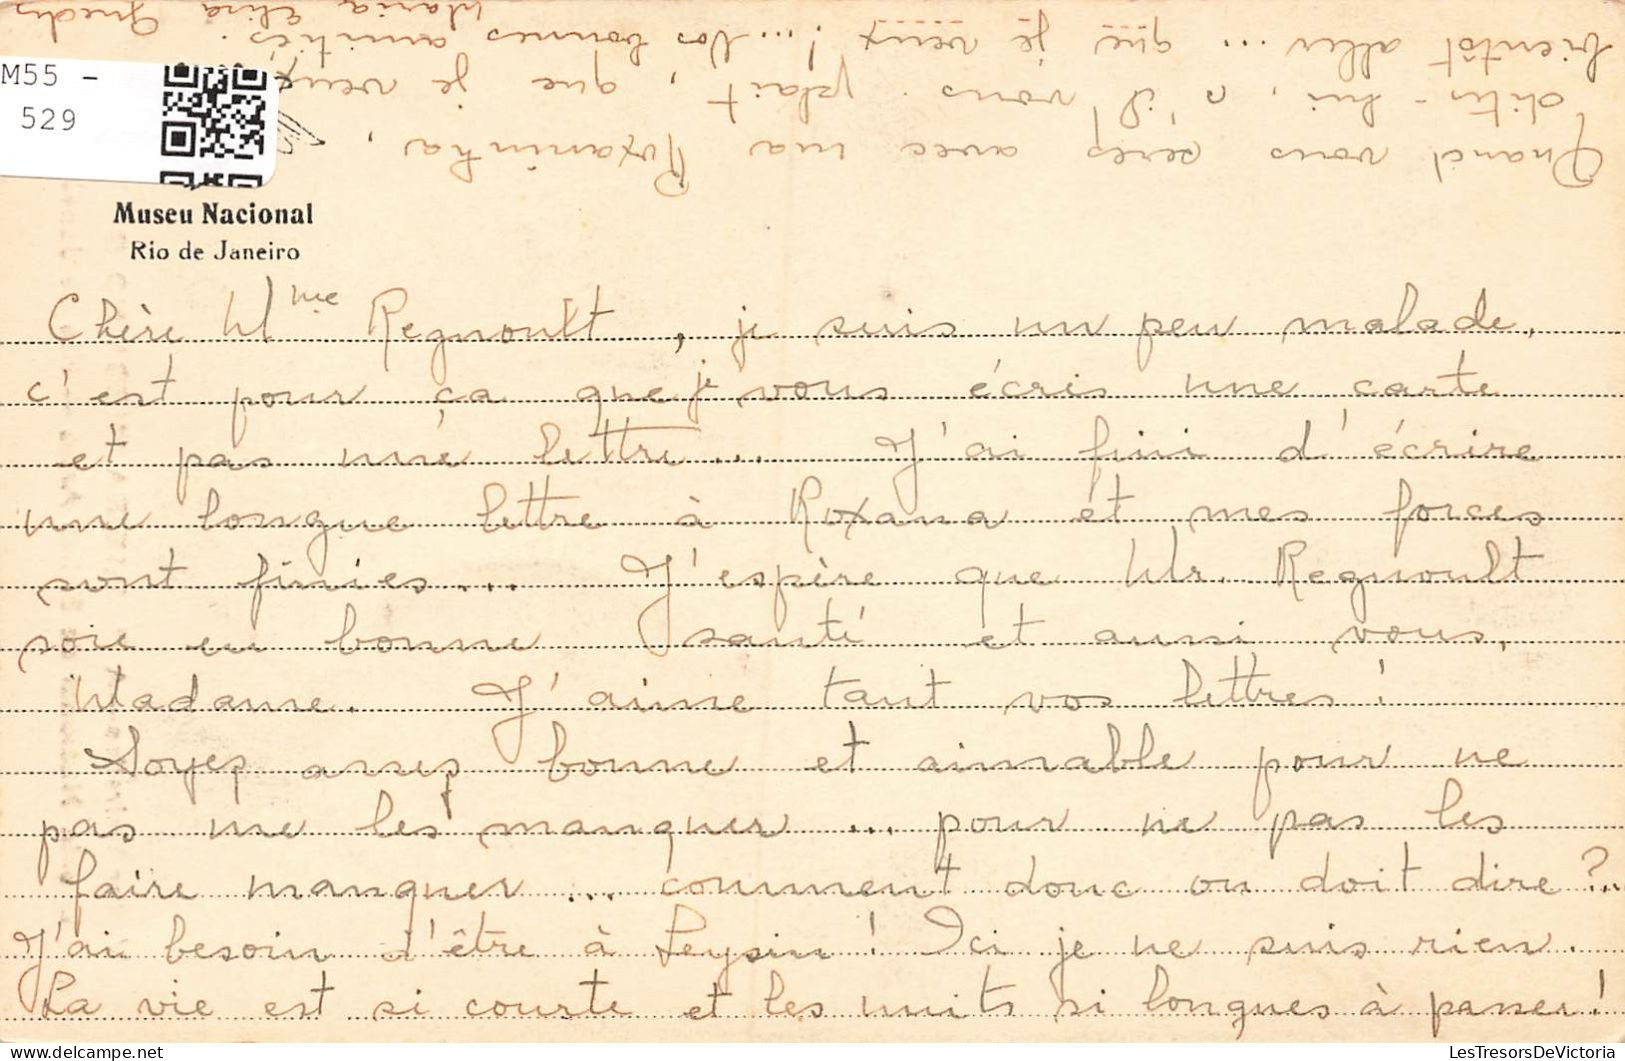 M55 -
529
Museu Nacional
Rio de Janeiro
Chère Mme Regnoult, je suis un peu malade,
c'est pour ça que je vous écris une carte
et pas une lettre... J'ai fini d'écrire
une longue lettre à Roxana et mes forces
sont finies... J'espère que Mr. Regnoult
soie en bonne santé et aussi vous,
Madame. J'aime tant vos lettres!
Soyez assez bonne et aimable pour ne
pas me les manquer... pour ne pas les
faire manquer... comment donc on doit dire?..
J'ai besoin d'être à Leysin! Ici je ne suis rien.
La vie est si courte et les nuits si longues à passer!
Quand vous serés avec ma Roxaninha,
dites-lui, s'il vous plait, que je veux
bientôt aller... que je veux!... Vos bonnes amitiés.
Maria Elisa Guedes
LesTresorsDeVictoria